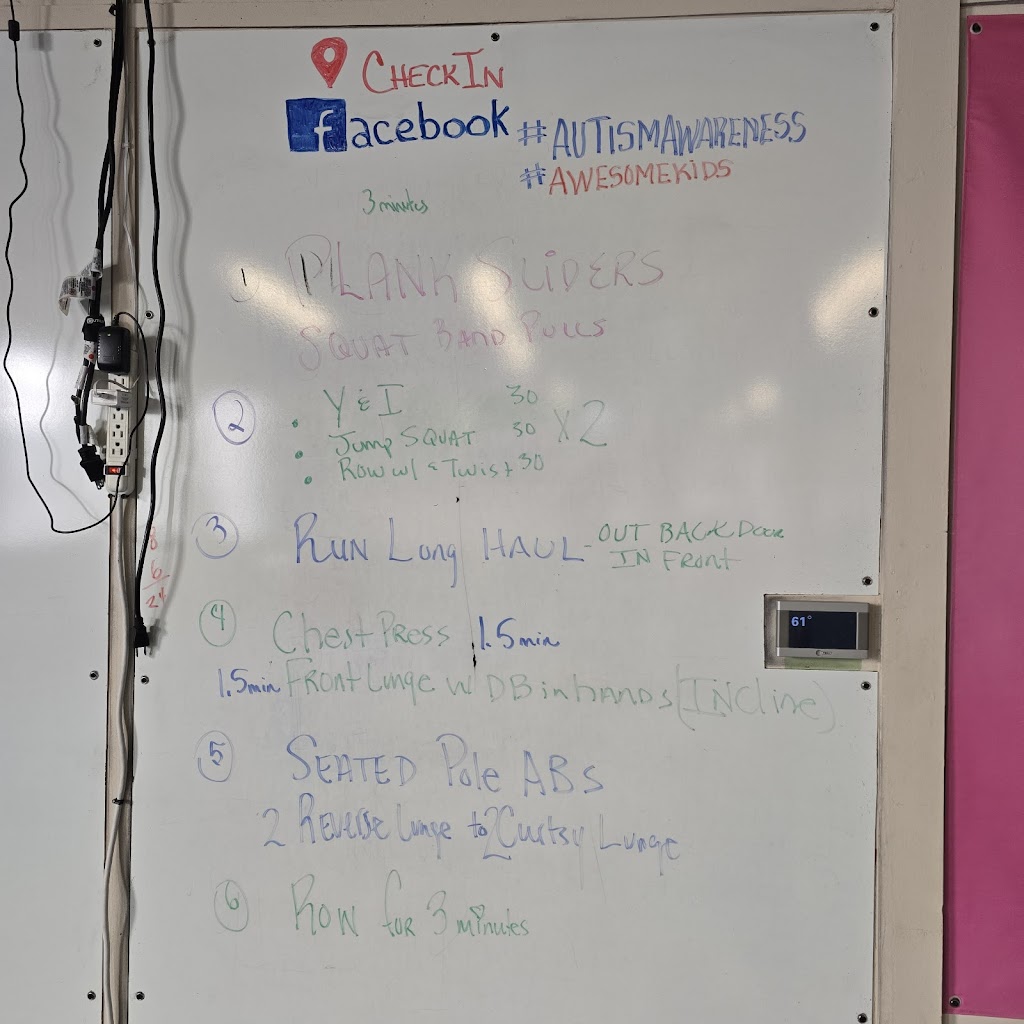 CHECKIN
facebook #AUTISMAWARENESS
#AWESOMEKIDS
3 minutes
1 PLANK SLIDERS
SQUAT BAND PULLS
2 • Y & I 30
• Jump SQUAT 30 X2
• ROW w/ & Twist 30
3 RUN Long HAUL - OUT BACK DOOR
IN FRONT
8
6
24
61°
4 Chest PRESS 1.5 min
1.5 min FRONT Lunge w/ DB in hands (INCline)
5 SEATED Pole ABS
2 REVERSE Lunge to 2 Curtsy Lunge
6 ROW for 3 minutes